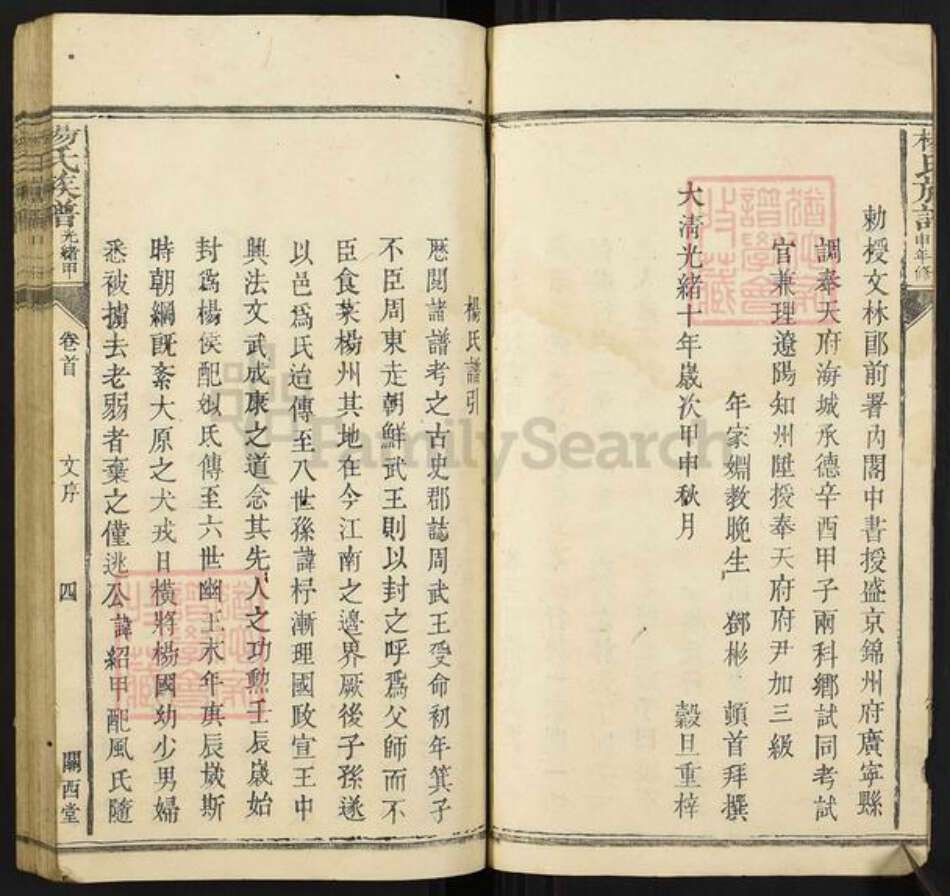 勅授文林郎前署內閣中書授盛京錦州府廣寧縣
調奉天府海城承德辛酉甲子兩科鄉試同考試
官兼理遼陽知州陞授奉天府府尹加三級
年家姻教晚生 鄧彬 頓首拜撰
大淸光緒十年歲次甲申秋月 穀旦重梓
楊氏譜引
歷閱諸譜考之古史郡誌周武王受命初年箕子
不臣周東走朝鮮武王則以封之呼爲父師而不
臣食菜楊州其地在今江南之邊界厥後子孫遂
以邑爲氏迨傳至八世孫諱杍漸理國政宣王中
興法文武成康之道念其先人之功勳壬辰歲始
封爲楊侯配姒氏傳至六世幽王末年庚辰歲斯
時朝綱旣紊大原之犬戎日橫將楊國幼少男婦
悉被擄去老弱者棄之僅逃公諱紹甲配風氏隨
楊氏族譜 光緒甲
卷首 文序 四 關西堂
楊氏族譜 申年修
FamilySearch